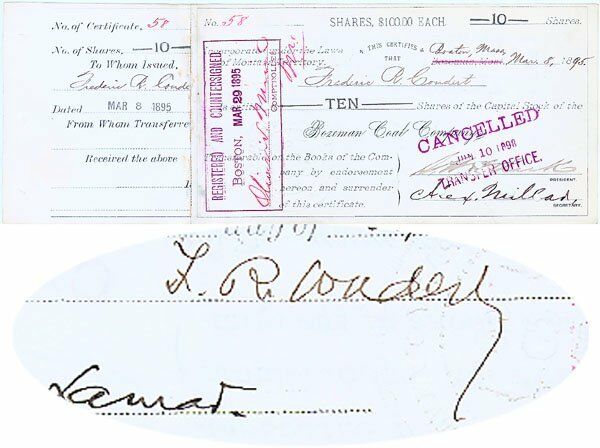 No. of Certificate, 58
No. of Shares, —10—
To Whom Issued,
Frederic R. Coudert
Dated MAR 8 1895
From Whom Transferre
Received the above
No. 58 SHARES, $100.00 EACH. —10— Shares.
Incorporated under the Laws of Montana Territory.
THIS CERTIFIES THAT
Boston, Mass, Mar. 8, 1895.
Frederic R. Coudert
TEN Shares of the Capital Stock of the
Bozeman Coal Company
Transferable on the Books of the Com-
pany by endorsement
hereon and surrender
of this certificate.
REGISTERED AND COUNTERSIGNED
BOSTON, MAR 29 1895
COMPTROLLER
CANCELLED
JUN 10 1898
TRANSFER OFFICE.
PRESIDENT.
Alex. Millar,
SECRETARY.
F. R. Coudert
Lamar.